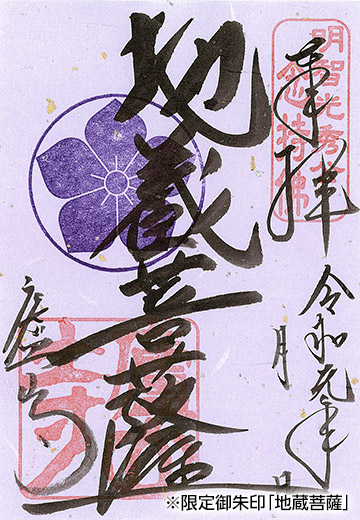 奉拝
明智光秀公
念持佛
令和元年
月 日
地蔵菩薩
廬山寺
※限定御朱印「地蔵菩薩」